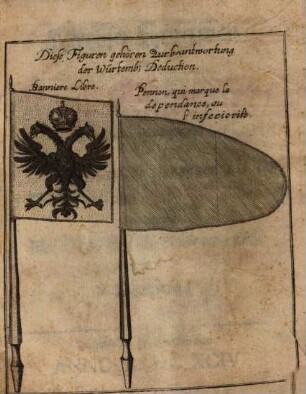 Diese Figuren gehören Zur beantwortung
der Würtemb: Deduction.
Banniere Libre.
Pennon, qui marque la
dependance, ou
l'inferiorité.